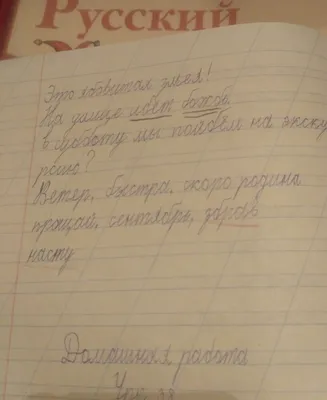 Русский
Это ядовитая змея!
На улице идёт
в субботу мы пойдём на экску
рсию?
Ветер, быстра, скоро родина
прощай, сентябрь, здрав
насту
Домашняя работа